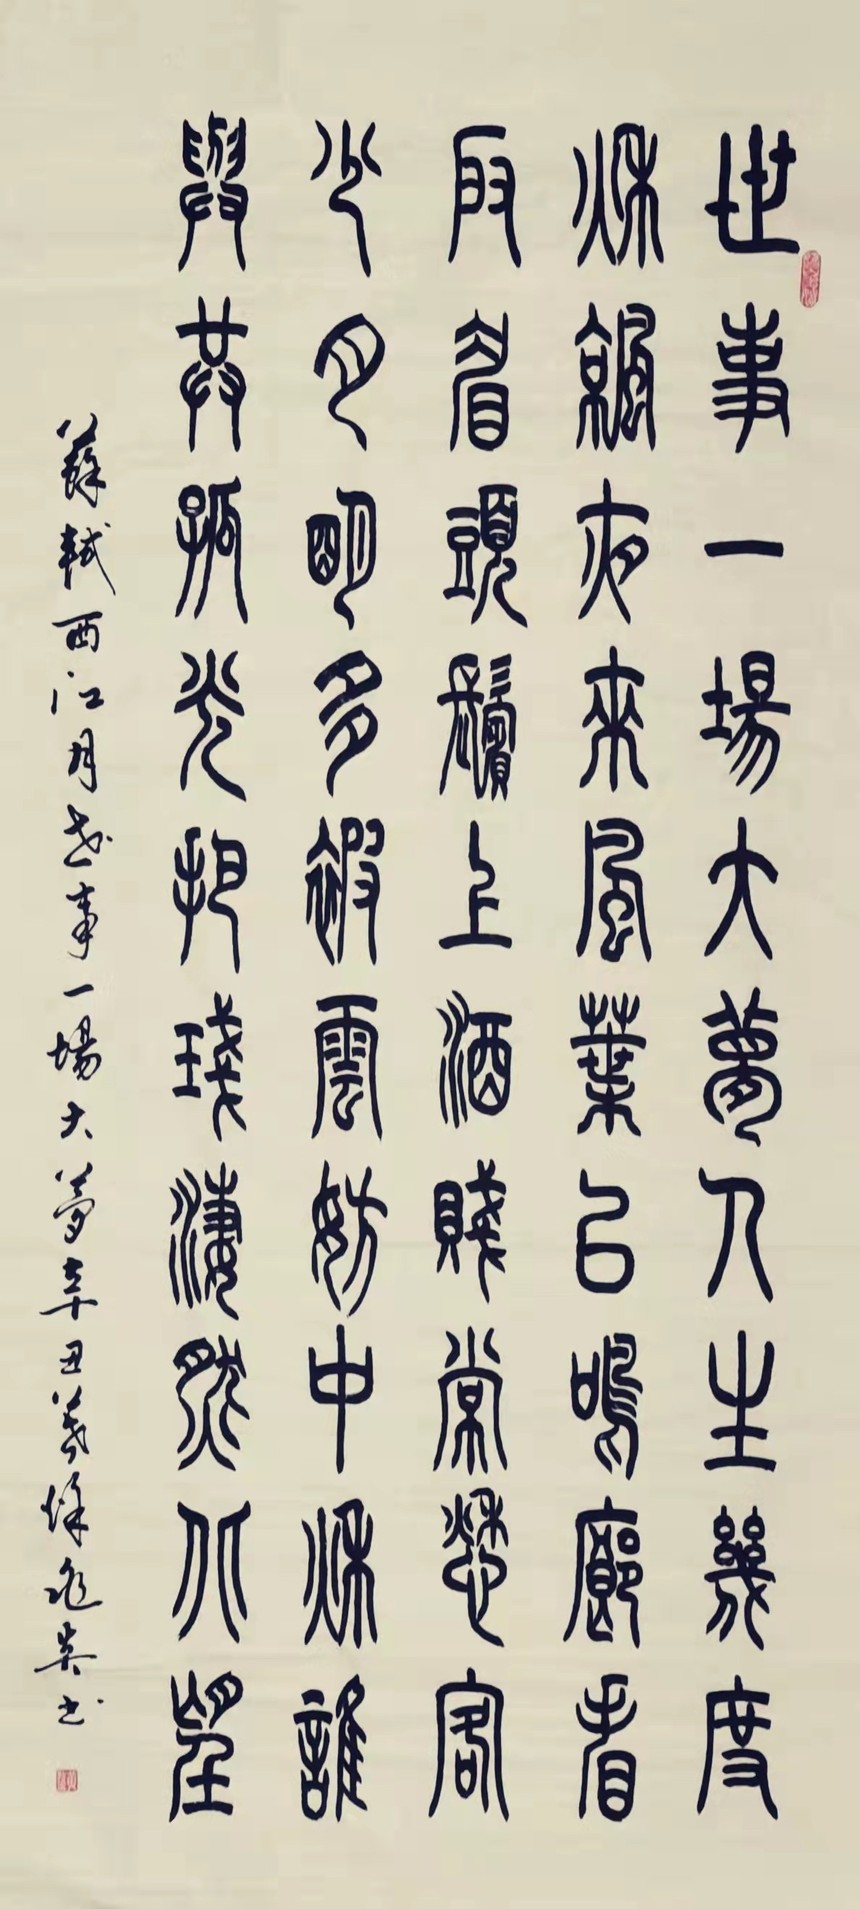 世事一場大夢人生幾度
秋涼夜來風葉已鳴廊看
取眉頭鬢上酒賤常愁客
少月明多被雲妨中秋誰
與共孤光把琖淒然北望
蘇軾西江月世事一場大夢辛丑徐书